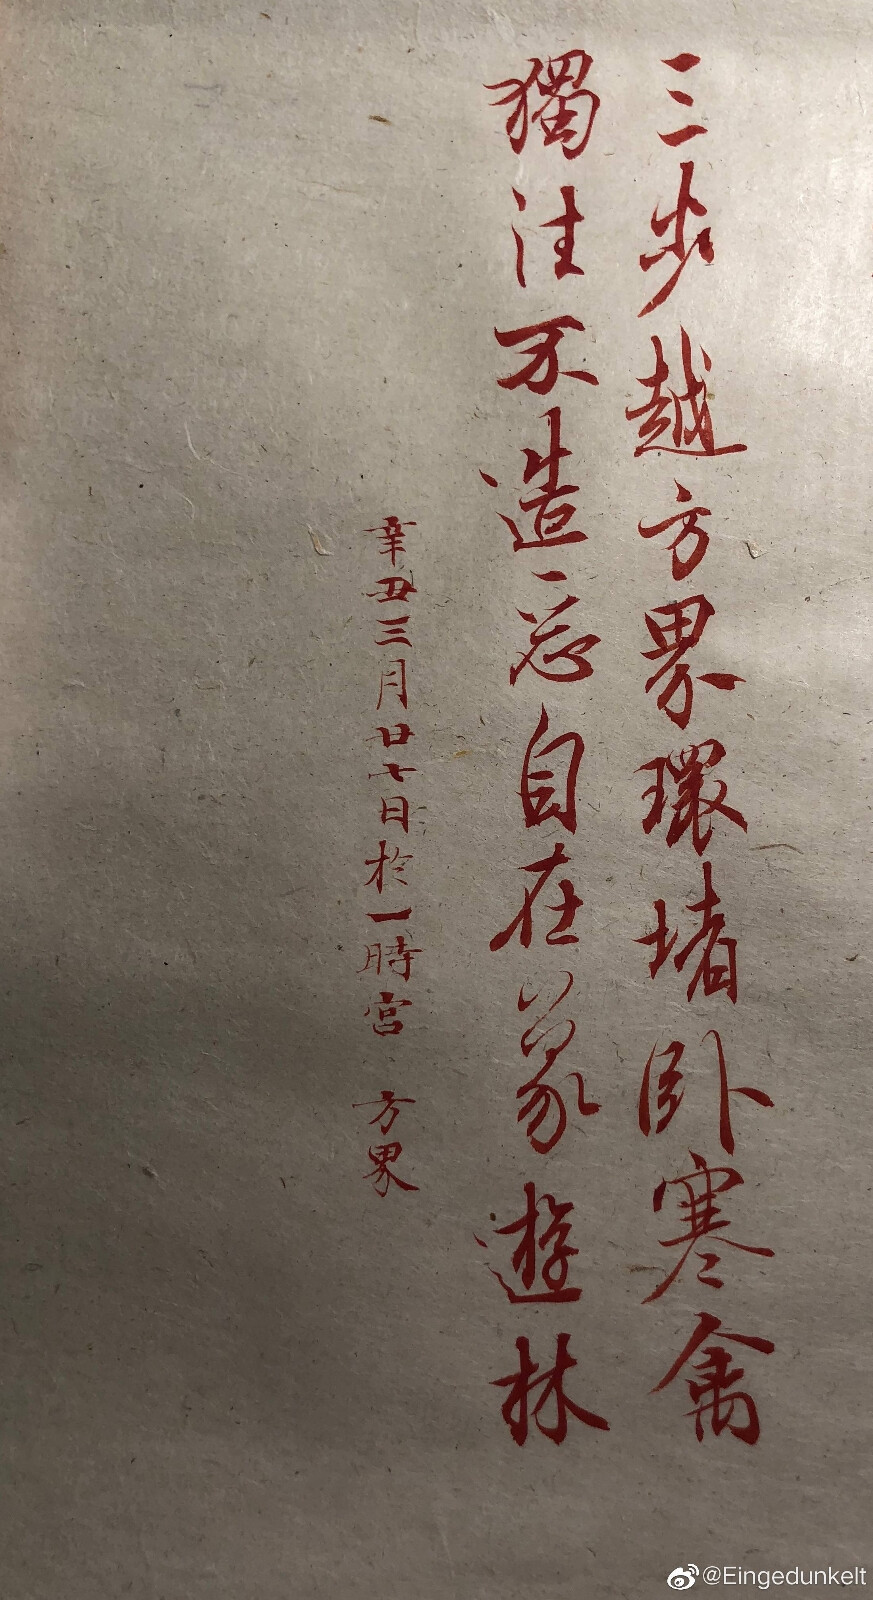 三步越方界環堵卧寒禽
獨往不造自在遊林
辛丑三月廿七日於一時宮 方界
@Eingedunkelt